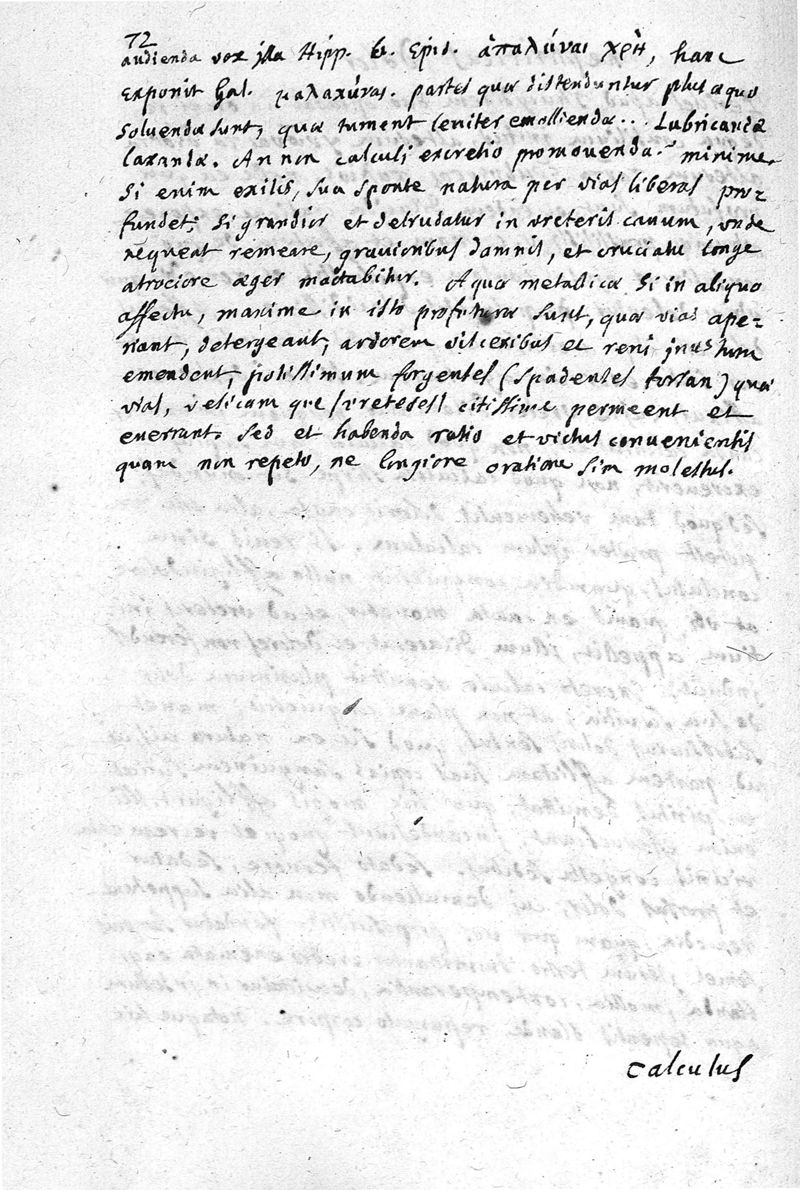 72
audienda vox illa Hipp. 6. Epid. ἁπαλύναι χρὴ, hanc
exponit Gal. μαλακύναι. partes quæ distenduntur plus æquo
soluendæ sunt, quæ tument leniter emolliendæ... Lubricandæ
laxandæ. An non calculi excretio promouenda? minime.
Si enim exilis, sua sponte natura per vias liberas pro-
fundet; si grandior et detrudatur in vreteris cauum, vnde
nequeat remeare, grauioribus damnis, et cruciatu longe
atrociore æger mactabitur. Aquæ metallicæ si in aliquo
affectu, maxime in isto profuturæ sunt, quæ vias ape-
riant, detergeant, ardorem visceribus et reni inustum
emendent, potissimum forgenses (spadenses forsan) quæ
vias, vesicam que [vreteres] citissime permeent et
euerrant. Sed et habenda ratio et victus conuenientis
quam non repeto, ne longiore oratione sim molestus.
calculus